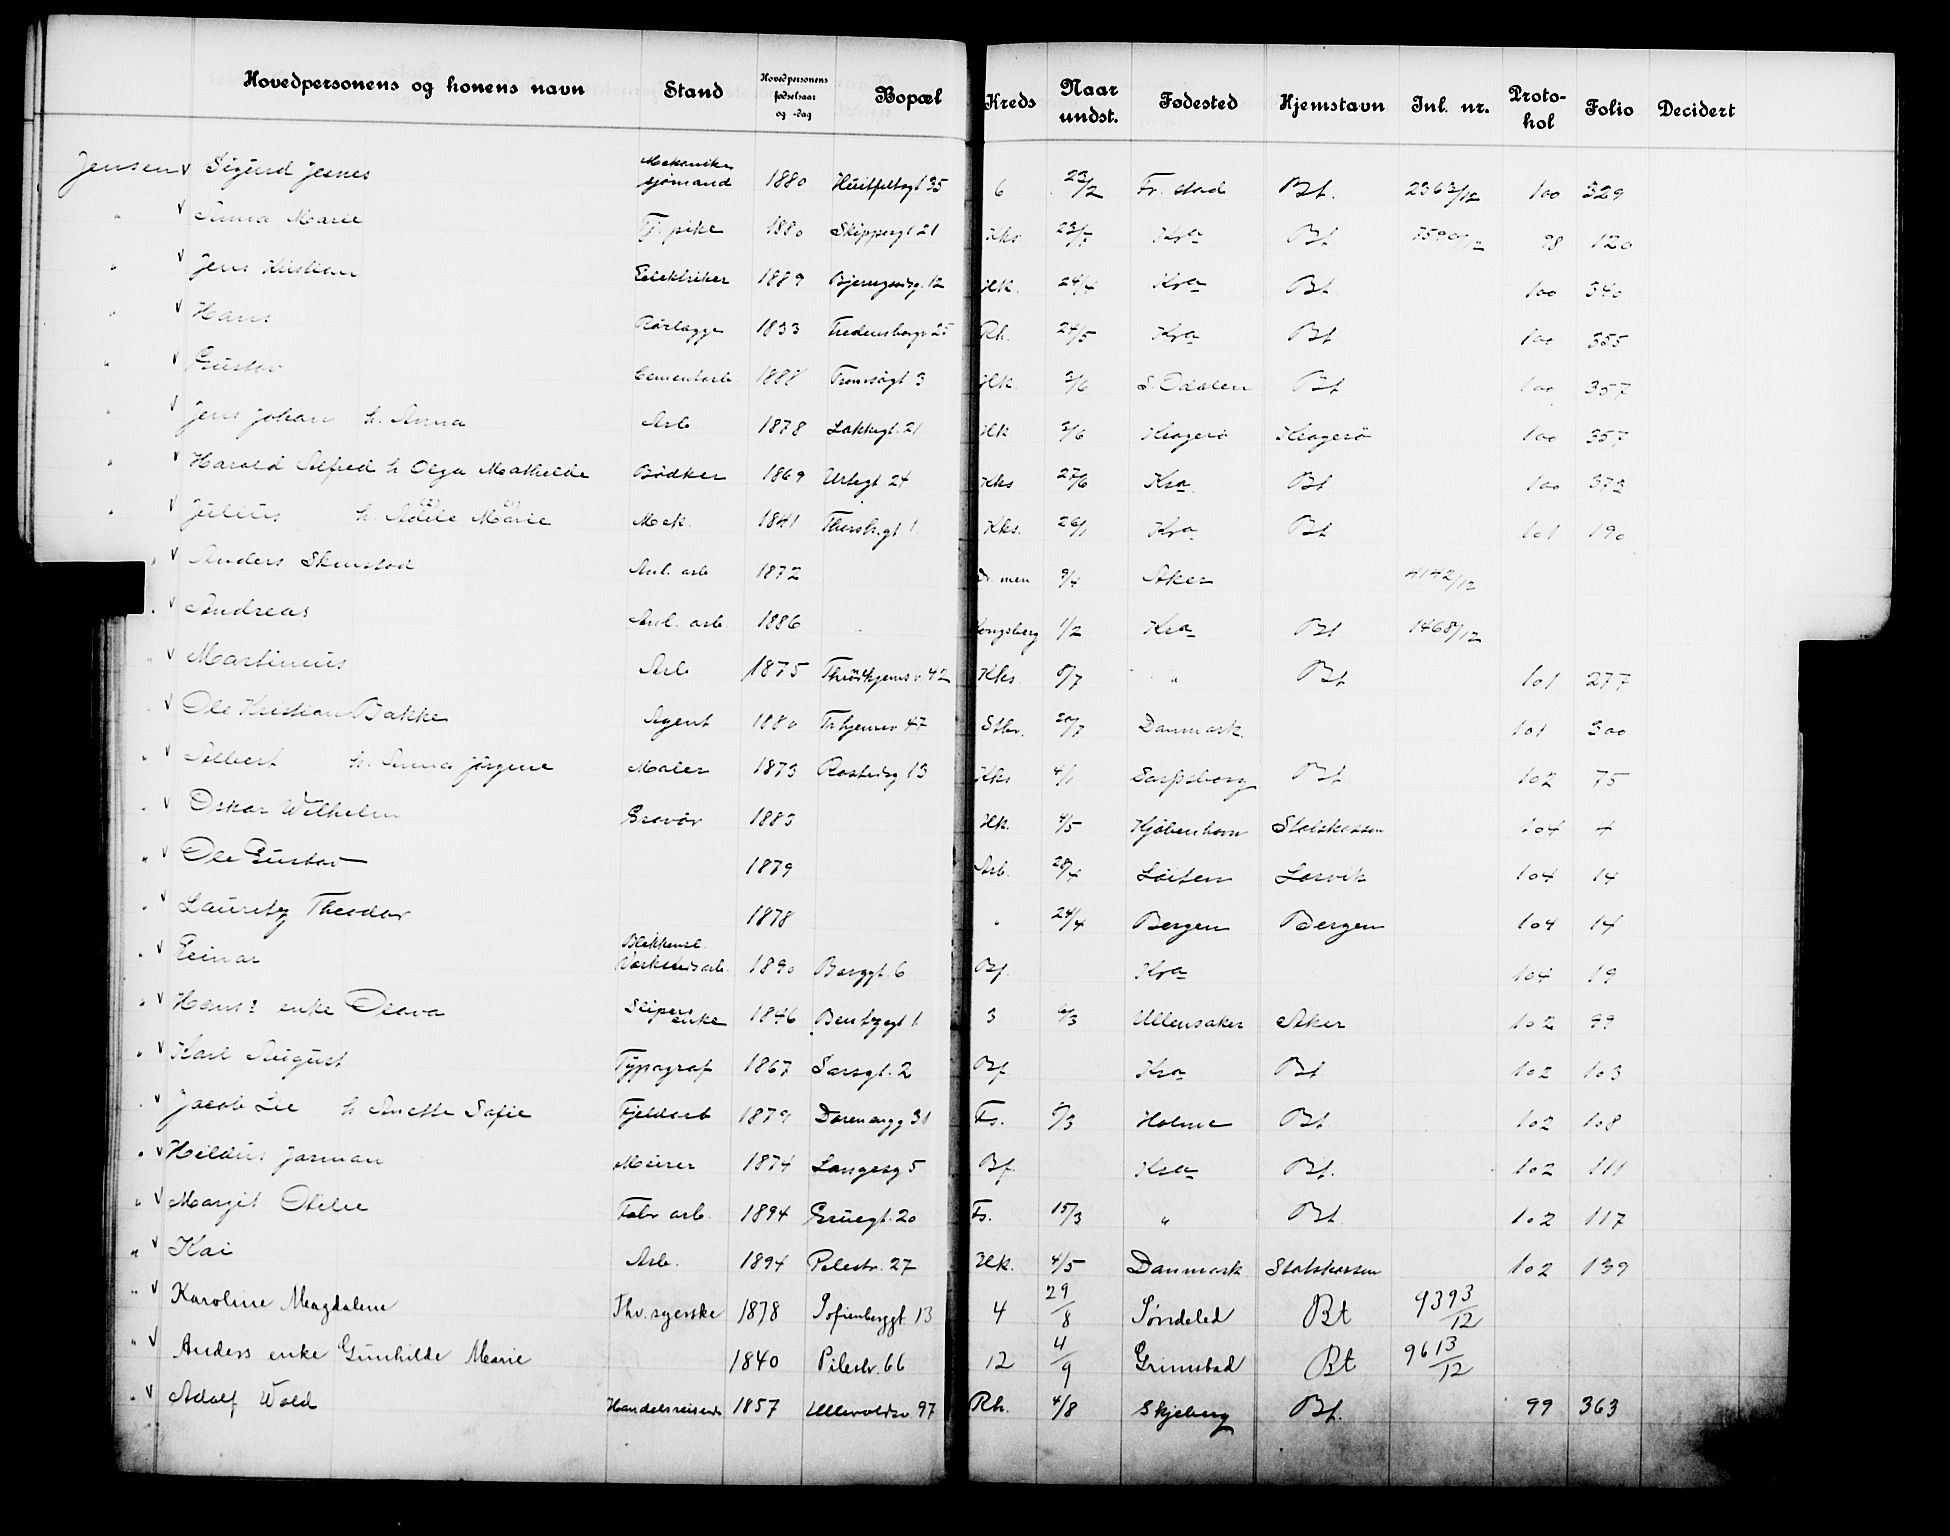 Hovedpersonens og konens navn Stand Hovedpersonens fødselsaar og -dag Bopæl Kreds Naar undst. Fødested Hjemstavn Inl. nr. Proto-kol Folio Decidert
Jensen Sigurd Jesnes Mekanike sjømand 1880 Huitfeltsgt 35 6 23/2 Fr. stad Bt. 2363/12 100 329
" Anna Marie Tj. pike 1880 Skippergt 21 Kks 23/7 Kra Bt 98 120
" Jens Kristian Eelektriker 1889 12 Hk. 24/4 Kra Bt 100 340
" Hans Rørlægge 1833 Fredensborgv 25 Rh. 24/5 Kra Bt 100 355
" Gustav Cementarb 1888 Tromsøgt 3 Hk. 3/6 S. Odalen Bt 100 357
" Jens Johan h. Anna Arb 1878 Lakkegt. 21 Hk 3/6 Kragerø Kragerø 100 357
" Harald Alfred h Olga Mathilde Bødker 1869 Urtegt 24 Kks 27/6 Kra Bt 100 373
" Julius h. Adele Marie Mek. 1841 1 Kks. 26/1 Kra Bt 101 190
" Anders Skinstad Anl. arb 1872 Dr. men 9/4 Aker 4142/12
" Andreas Anl. arb. 1886 Kongsberg 1/2 Kra Bt 1468/12
" Martinius Arb 1875 42 Kks. 8/7 " Bt 101 277
" Ole Kristian Bakke Agent 1880 Trhjemsv 47 Stbr. 20/7 Danmark. 101 300
" Albert h. Anna Jørgine Maler 1873 Rostedsg 13 Kks 4/1 Sarpsborg Bt 102 75
" Oskar Wilhelm Gravør 1883 Hk. 4/5 Kjøbenhavn Statskassen 104 4
" Ole Gustav 1879 Arb. 28/4 Løiten Larvik 104 14
" Lauritz Theodor 1878 " 24/4 Bergen Bergen 104 14
" Einar Blikkensl. Værkstedsarb. 1890 Borggt. 6 Bf. Kra 104 19
" Hans: enke Olava Slipers enke 1846 Bentzegt 1. 3 6/3 Ullensaker Aker 102 99
" Karl August Typograf 1867 Sarsgt. 2 Bf Kra Bt 102 103
" Jacob Lie h Anette Sofie Fjeldarb 1879 31 Fs. 8/3 Holme Bt 102 108
" Hildus Jarman Murer 1874 Langesg 5 Bf. Kra Bt. 102 111
" Margit Otelie Fabr arb. 1894 Gruegt. 20 Fs. 15/3 " Bt. 102 117
" Kai Arb. 1894 Pilestr. 27 Hk. 4/5 Danmark Statskassen 102 139
" Karoline Magdalene Thv. syerske 1878 Sofienberggt 13 4 29/8 Søndeled Bt 9393/12
" Anders enke Gunhilde Marie 1840 Pilestr. 66 12 4/9 Grimstad Bt 9613/12
" Adolf Wold Handelsreisende 1857 Ullevoldsv 97 Rh. 4/8 Skjeberg Bt. 99 363